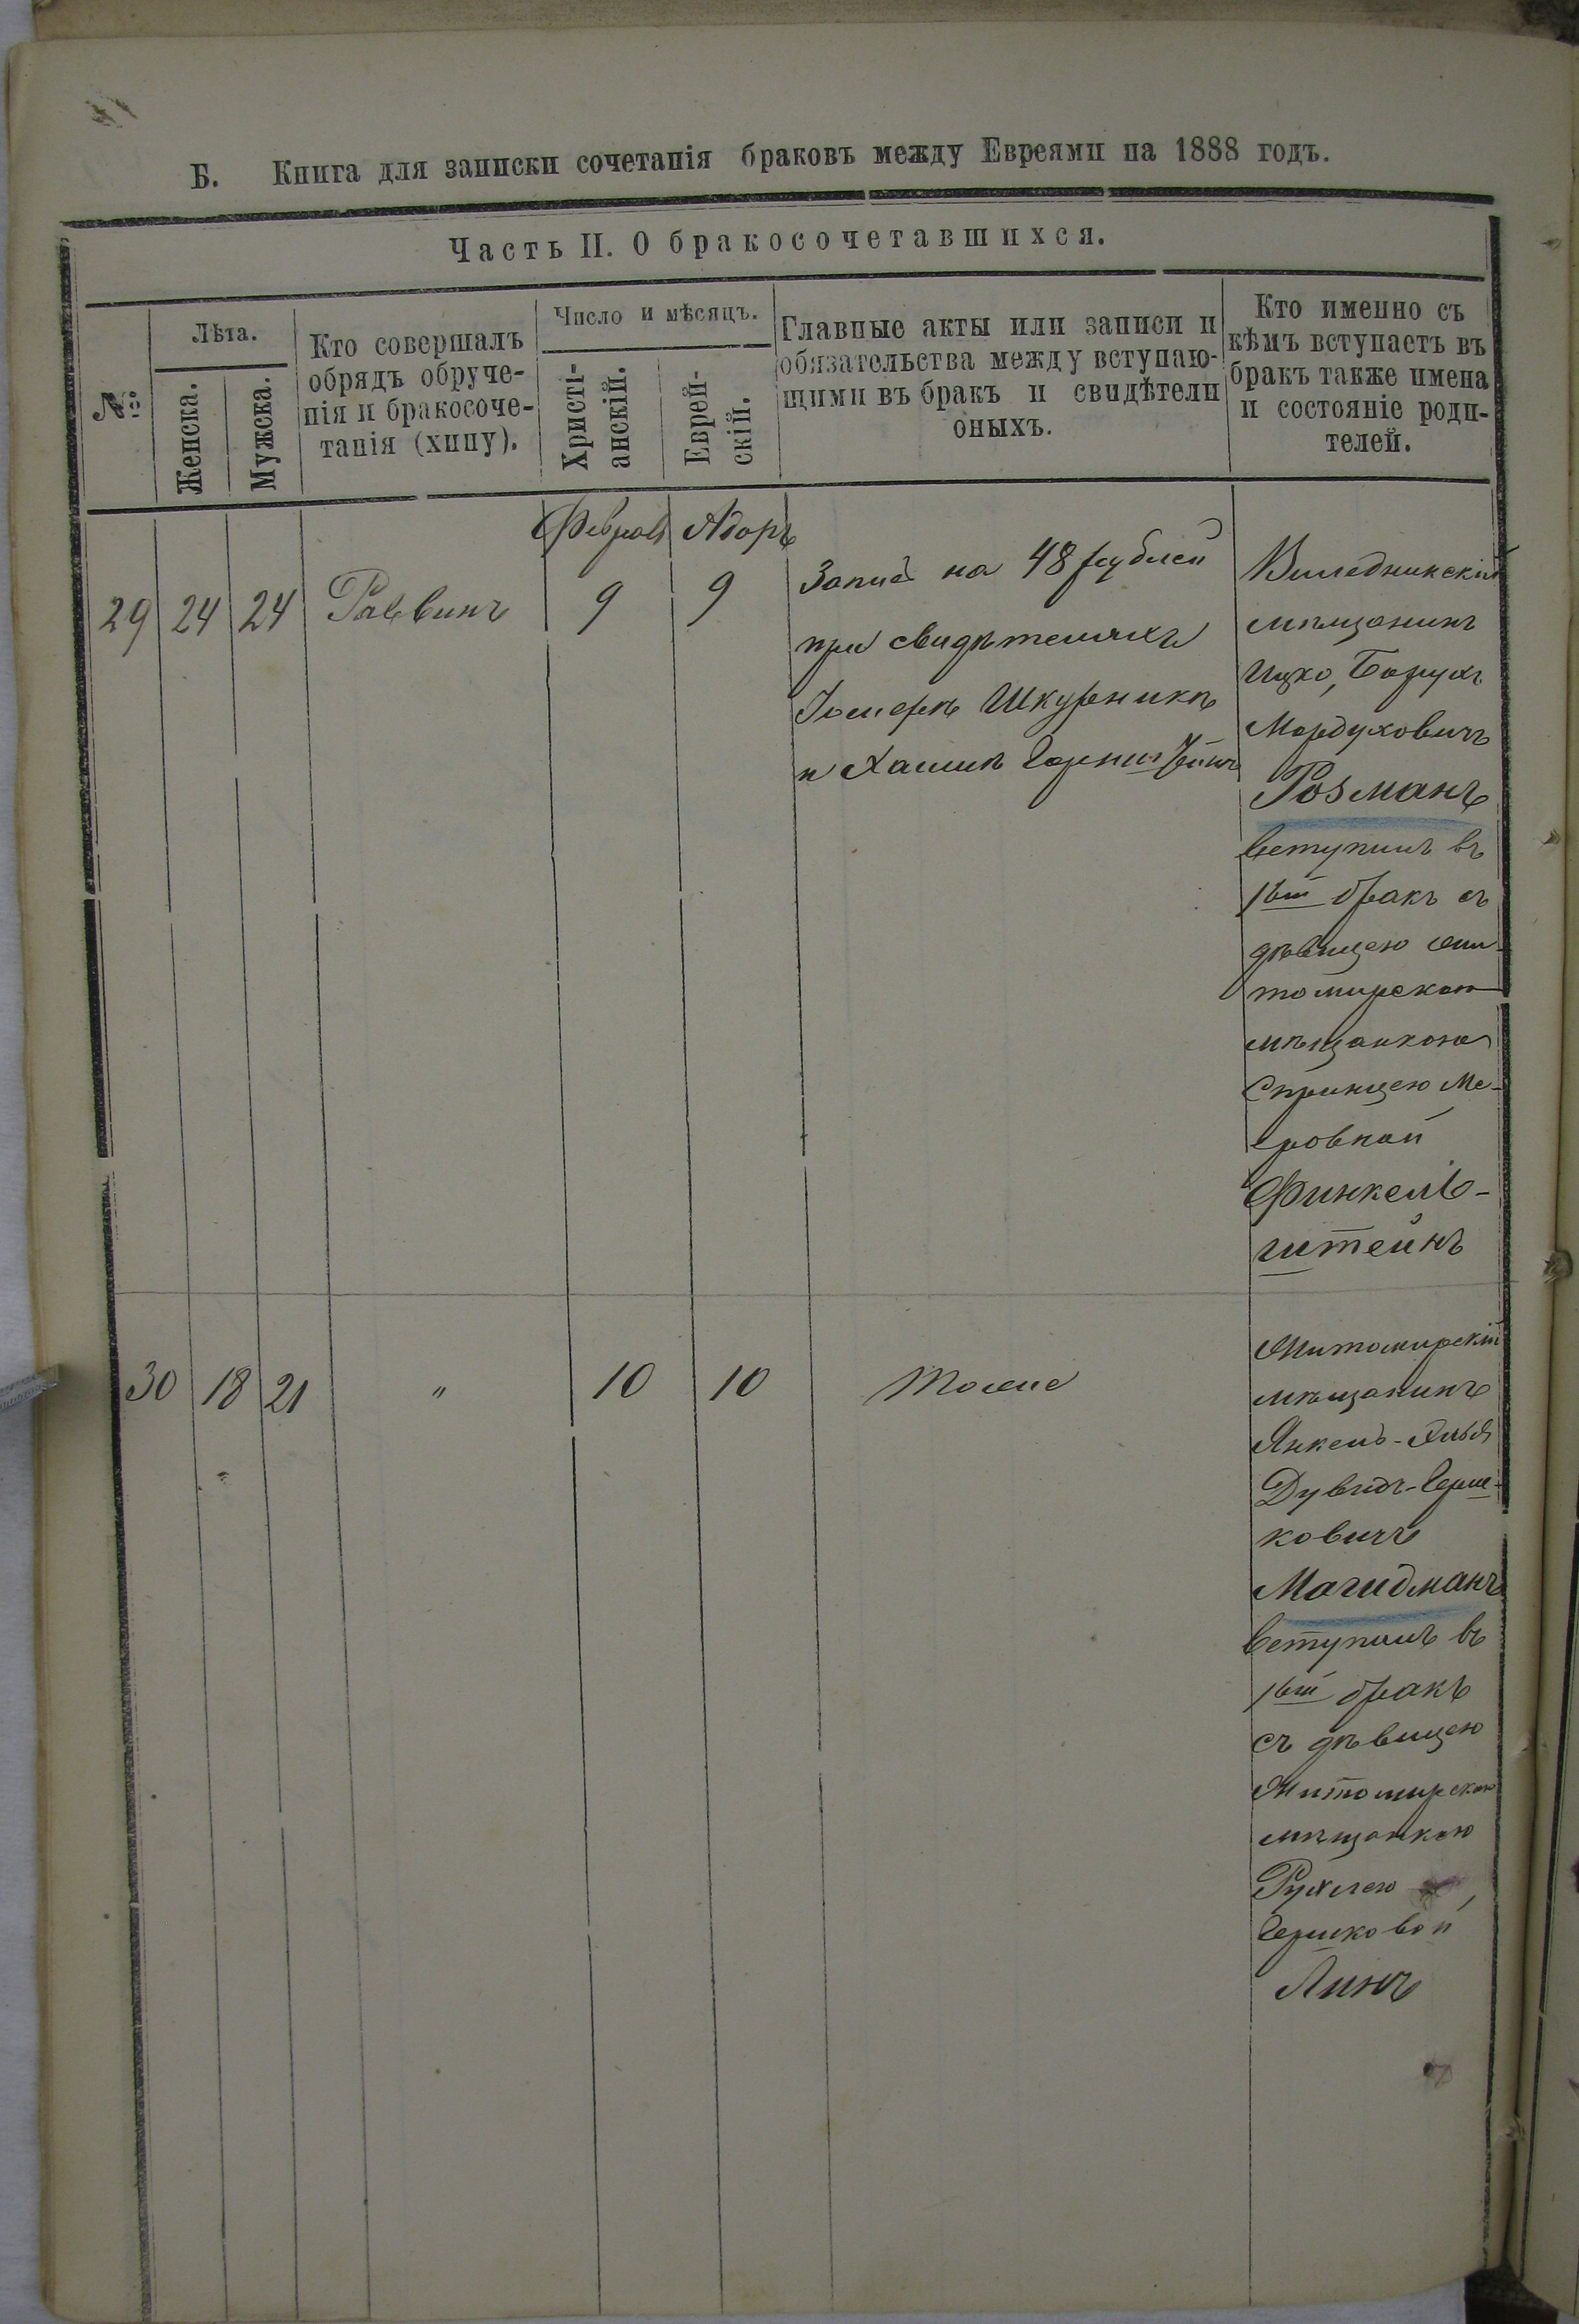 Б. Книга для записки сочетанія браковъ между Евреями на 1888 годъ.
Часть II. О бракосочетавшихся.
№
Лѣта.
Женска.
Мужска.
Кто совершалъ
обрядъ обруче-
нія и бракосоче-
танія (хипу).
Число и мѣсяцъ.
Христі-
анскій.
Еврей-
скій.
Главные акты или записи и
обязательства между вступаю-
щими въ бракъ и свидѣтели
оныхъ.
Кто именно съ
кѣмъ вступаетъ въ
бракъ также имена
и состояніе роди-
телей.
Адоръ
29 24 24 Раввинъ 9 9
Запись на 48 рублей
при свидѣтеляхъ
Шкурникъ
и Хаимъ
Виледникскій
мѣщанинъ
Ицко, Борухъ
Мордуховичъ
Розманъ
вступилъ въ
1ый бракъ съ
дѣвицею жи-
томирскою
мѣщанкою
Спринцею Ме-
ровной
Финкель-
штейнъ
30 18 21 " 10 10 Тоже
Житомирскій
мѣщанинъ
Янкель-
Дувидъ-Герш-
ковичъ
Магидманъ
вступилъ въ
1ый бракъ
съ дѣвицею
Житомирскою
мѣщанкою
Рухлею
Гершковой
Линъ